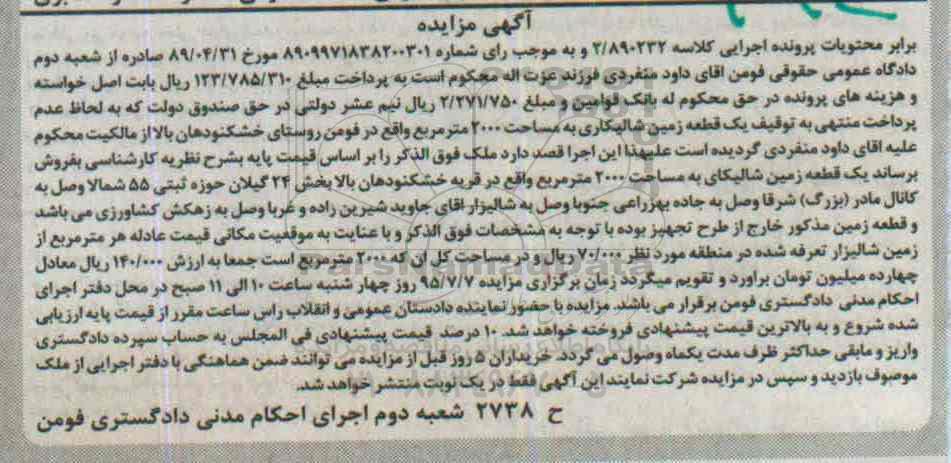 آگهی مزایده
برابر محتویات پرونده اجرایی کلاسه ۲/۸۹۰۲۳۲ و به موجب رای شماره ۸۹۰۹۹۷۱۸۳۸۲۰۰۳۰۱ مورخ ۸۹/۰۴/۳۱ صادره از شعبه دوم
دادگاه عمومی حقوقی فومن اقای داود منفردی فرزند عزت اله محکوم است به پرداخت مبلغ ۱۲۳/۷۸۵/۳۱۰ ریال بابت اصل خواسته
و هزینه های پرونده در حق محکوم له بانک قوامین و مبلغ ۲/۲۷۱/۷۵۰ ریال نیم عشر دولتی در حق صندوق دولت که به لحاظ عدم
پرداخت منتهی به توقیف یک قطعه زمین شالیکاری به مساحت ۲۰۰۰ مترمربع واقع در فومن روستای خشکنودهان بالا از مالکیت محکوم
علیه اقای داود منفردی گردیده است علیهذا این اجرا قصد دارد ملک فوق الذکر را بر اساس قیمت پایه بشرح نظریه کارشناسی بفروش
برساند یک قطعه زمین شالیکای به مساحت ۲۰۰۰ مترمربع واقع در قریه خشکنودهان بالا بخش ۲۴ گیلان حوزه ثبتی ۵۵ شمالا وصل به
کانال مادر (بزرگ) شرقا وصل به جاده بهزراعی جنوبا وصل به شالیزار اقای جاوید شیرین زاده و غربا وصل به زهکش کشاورزی می باشد
و قطعه زمین مذکور خارج از طرح تجهیز بوده با توجه به مشخصات فوق الذکر و با عنایت به موقعیت مکانی قیمت عادله هر مترمربع از
زمین شالیزار تعرفه شده در منطقه مورد نظر ۷۰/۰۰۰ ریال و در مساحت کل ان که ۲۰۰۰ مترمربع است جمعا به ارزش ۱۴۰/۰۰۰ ریال معادل
چهارده میلیون تومان براورد و تقویم میگردد زمان برگزاری مزایده ۹۵/۷/۷ روز چهار شنبه ساعت ۱۰ الی ۱۱ صبح در محل دفتر اجرای
احکام مدنی دادگستری فومن برقرار می باشد. مزایده با حضور نماینده دادستان عمومی و انقلاب راس ساعت مقرر از قیمت پایه ارزیابی
شده شروع و به بالاترین قیمت پیشنهادی فروخته خواهد شد. ۱۰ درصد قیمت پیشنهادی فی المجلس به حساب سپرده دادگستری
واریز و مابقی حداکثر ظرف مدت یکماه وصول می گردد. خریداران ۵ روز قبل از مزایده می توانند ضمن هماهنگی با دفتر اجرایی از ملک
موصوف بازدید و سپس در مزایده شرکت نمایند این آگهی فقط در یک نوبت منتشر خواهد شد.
ح ۲۷۳۸ شعبه دوم اجرای احکام مدنی دادگستری فومن